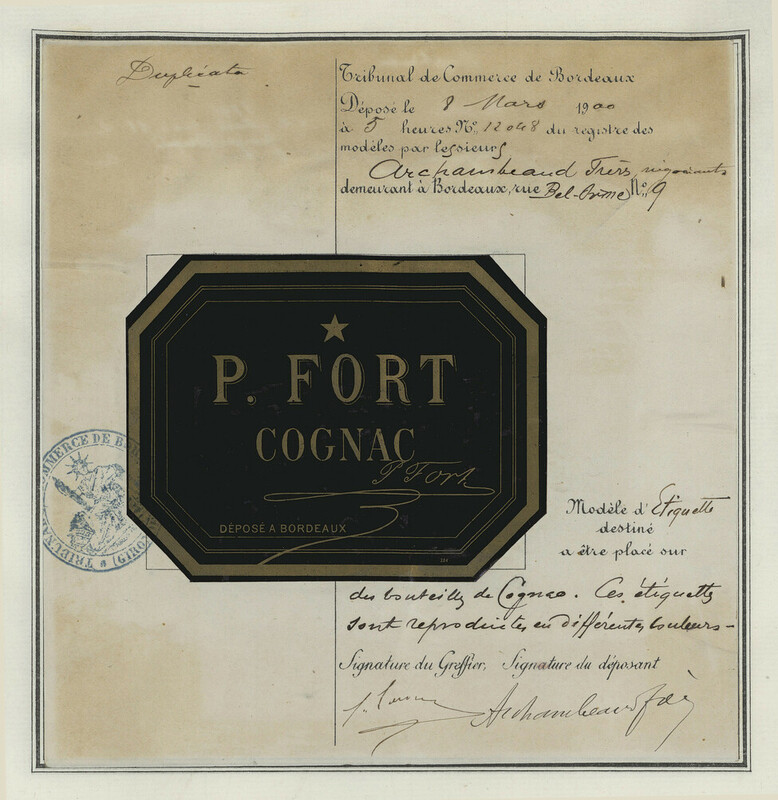 Duplicata
Tribunal de Commerce de Bordeaux
Déposé le 8 Mars 1900
à 5 heures Nº 12048 du registre des
modèles par les sieurs
Archambeaud Frères, négociants
demeurant à Bordeaux, rue Bel-Orme Nº 9
P. FORT
COGNAC
P Fort
DÉPOSÉ A BORDEAUX
COMMERCE DE BOR
TRIBUNAL
(GIRONDE)
Modèle d'Etiquette
destiné
a être placé sur
des bouteilles de Cognac. Ces étiquettes
sont reproduites en différentes couleurs-
Signature du Greffier, Signature du déposant
Archambeaud Frères